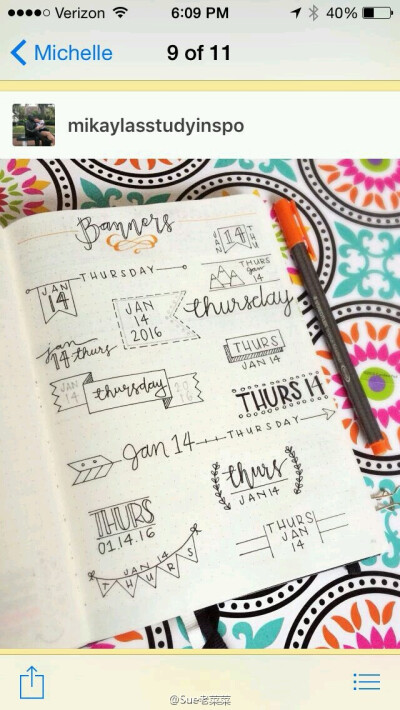 Verizon 6:09 PM 40%
Michelle 9 of 11
mikaylasstudyinspo
Banners
JAN 14 THU
THURSDAY
JAN
14
THURS
Jan
14
JAN
14
2016
thursday
jan
14 thurs
THURS
JAN 14
JAN
14
thursday
20
16
THURS 14
Jan 14 THURSDAY
thurs
JAN 14
THURS
01.14.16
THURS
JAN
14
JAN 14
THURS
@Sue老菜菜